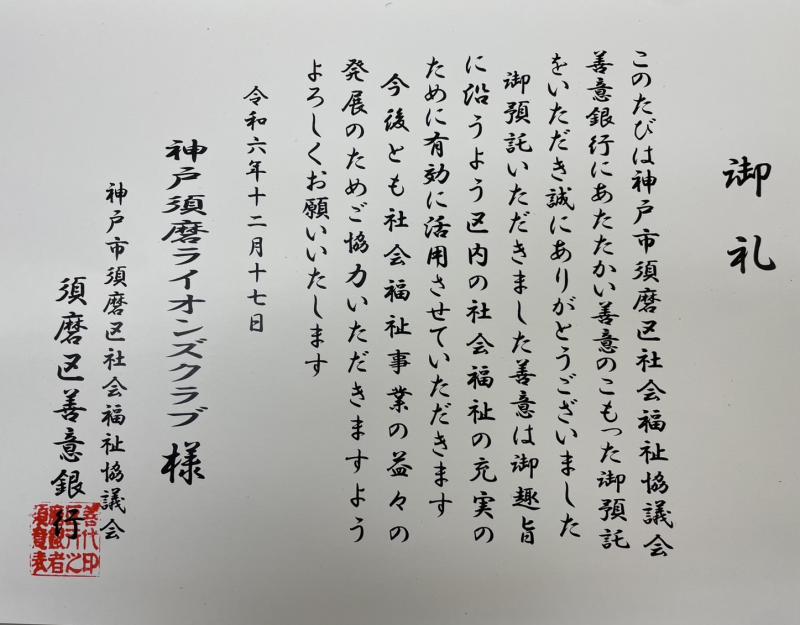 御礼
このたびは神戸市須磨区社会福祉協議会
善意銀行にあたたかい善意のこもった御預託
をいただき誠にありがとうございました
御預託いただきました善意は御趣旨
に沿うよう区内の社会福祉の充実の
ために有効に活用させていただきます
今後とも社会福祉事業の益々の
発展のためご協力いただきますよう
よろしくお願いいたします
令和六年十二月十七日
神戸須磨ライオンズクラブ様
神戸市須磨区社会福祉協議会
須磨区善意銀行